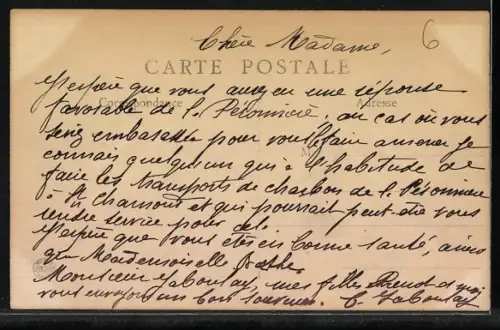 Chère Madame,
6
CARTE POSTALE
J'espère que vous avez eu une réponse
Correspondance
Adresse
favorable de l. Péronnière, au cas où vous
seriez embarassée pour vous le faire amener je
connais quelqu'un qui a l'habitude de
faire les transports de charbon de l. Péronnière
à St Chamont et qui pourrait peut-être vous
rendre service pour
J'espère que vous êtes en bonne santé, ainsi
que Mademoiselle
Monsieur Jaboulay, mes filles et moi
vous envoyons un bon souvenir. C. Jaboulay